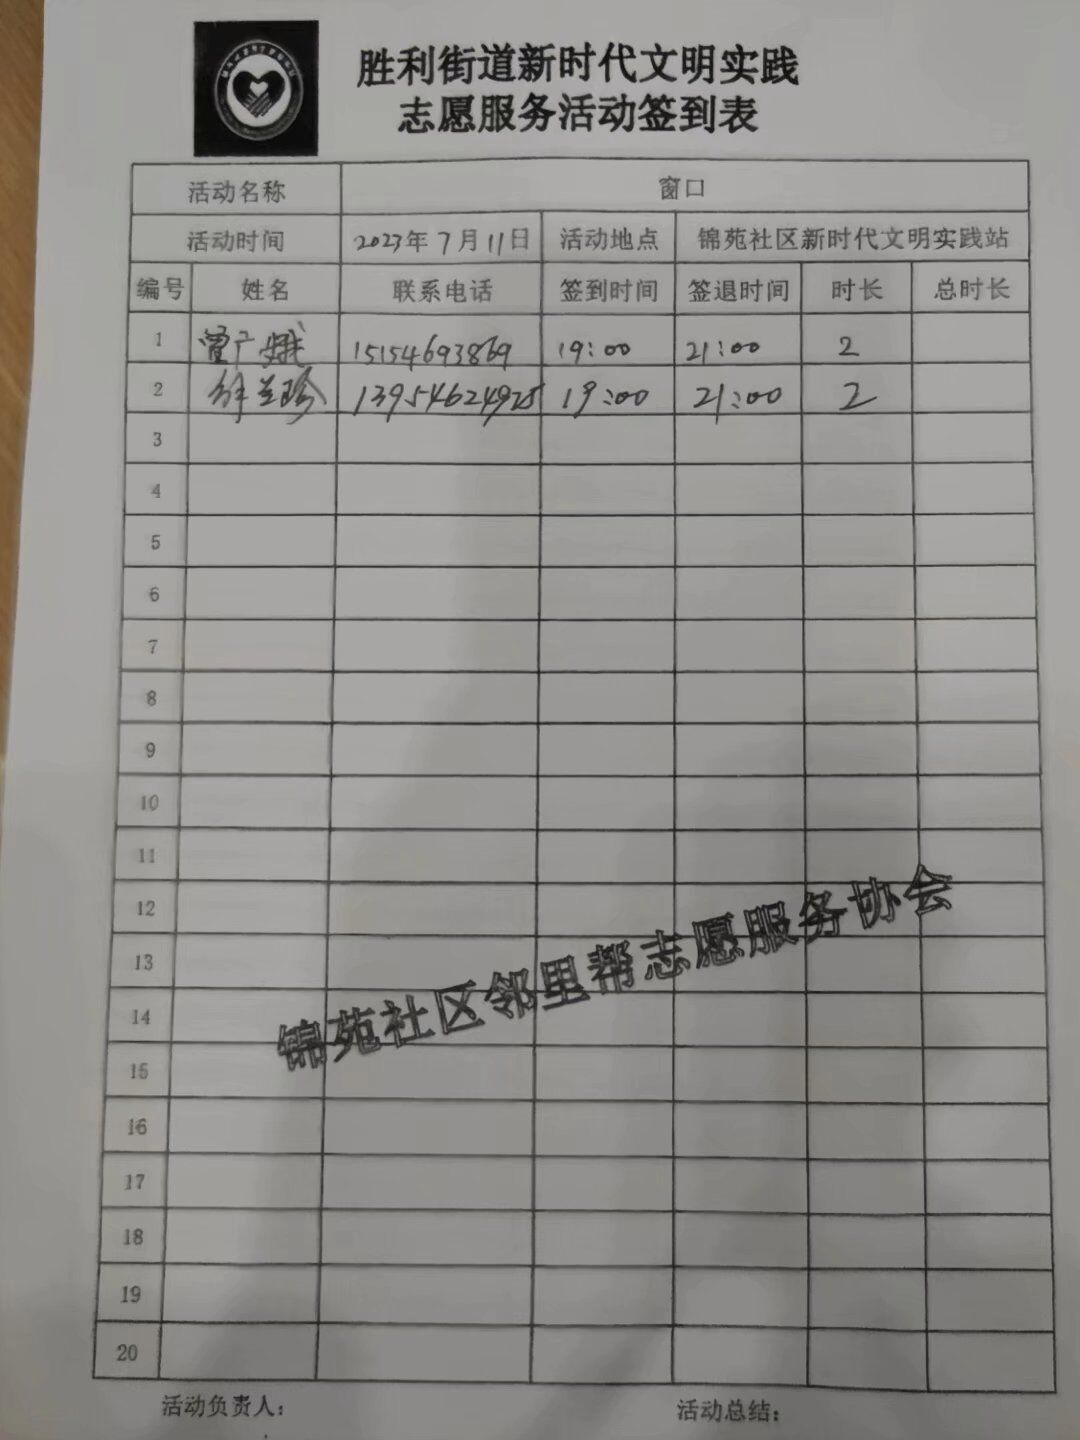 胜利街道新时代文明实践
志愿服务活动签到表
活动名称 窗口
活动时间 2023年7月11日 活动地点 锦苑社区新时代文明实践站
编号 姓名 联系电话 签到时间 签退时间 时长 总时长
1 曾广娥 15154693869 19:00 21:00 2
2 徐兰珍 13954624925 19:00 21:00 2
3
4
5
6
7
8
9
10
11
12
13
14
15
16
17
18
19
20
锦苑社区邻里帮志愿服务协会
活动负责人： 活动总结：